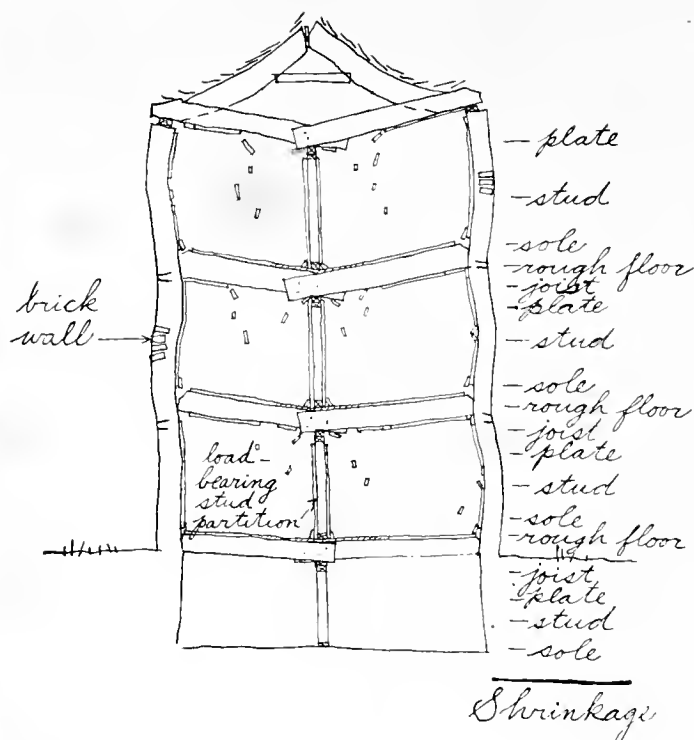 brick
wall
load-
bearing
stud
partition
- plate
- stud
- sole
- rough floor
- joist
- plate
- stud
- sole
- rough floor
- joist
- plate
- stud
- sole
- rough floor
- joist
- plate
- stud
- sole
Shrinkage